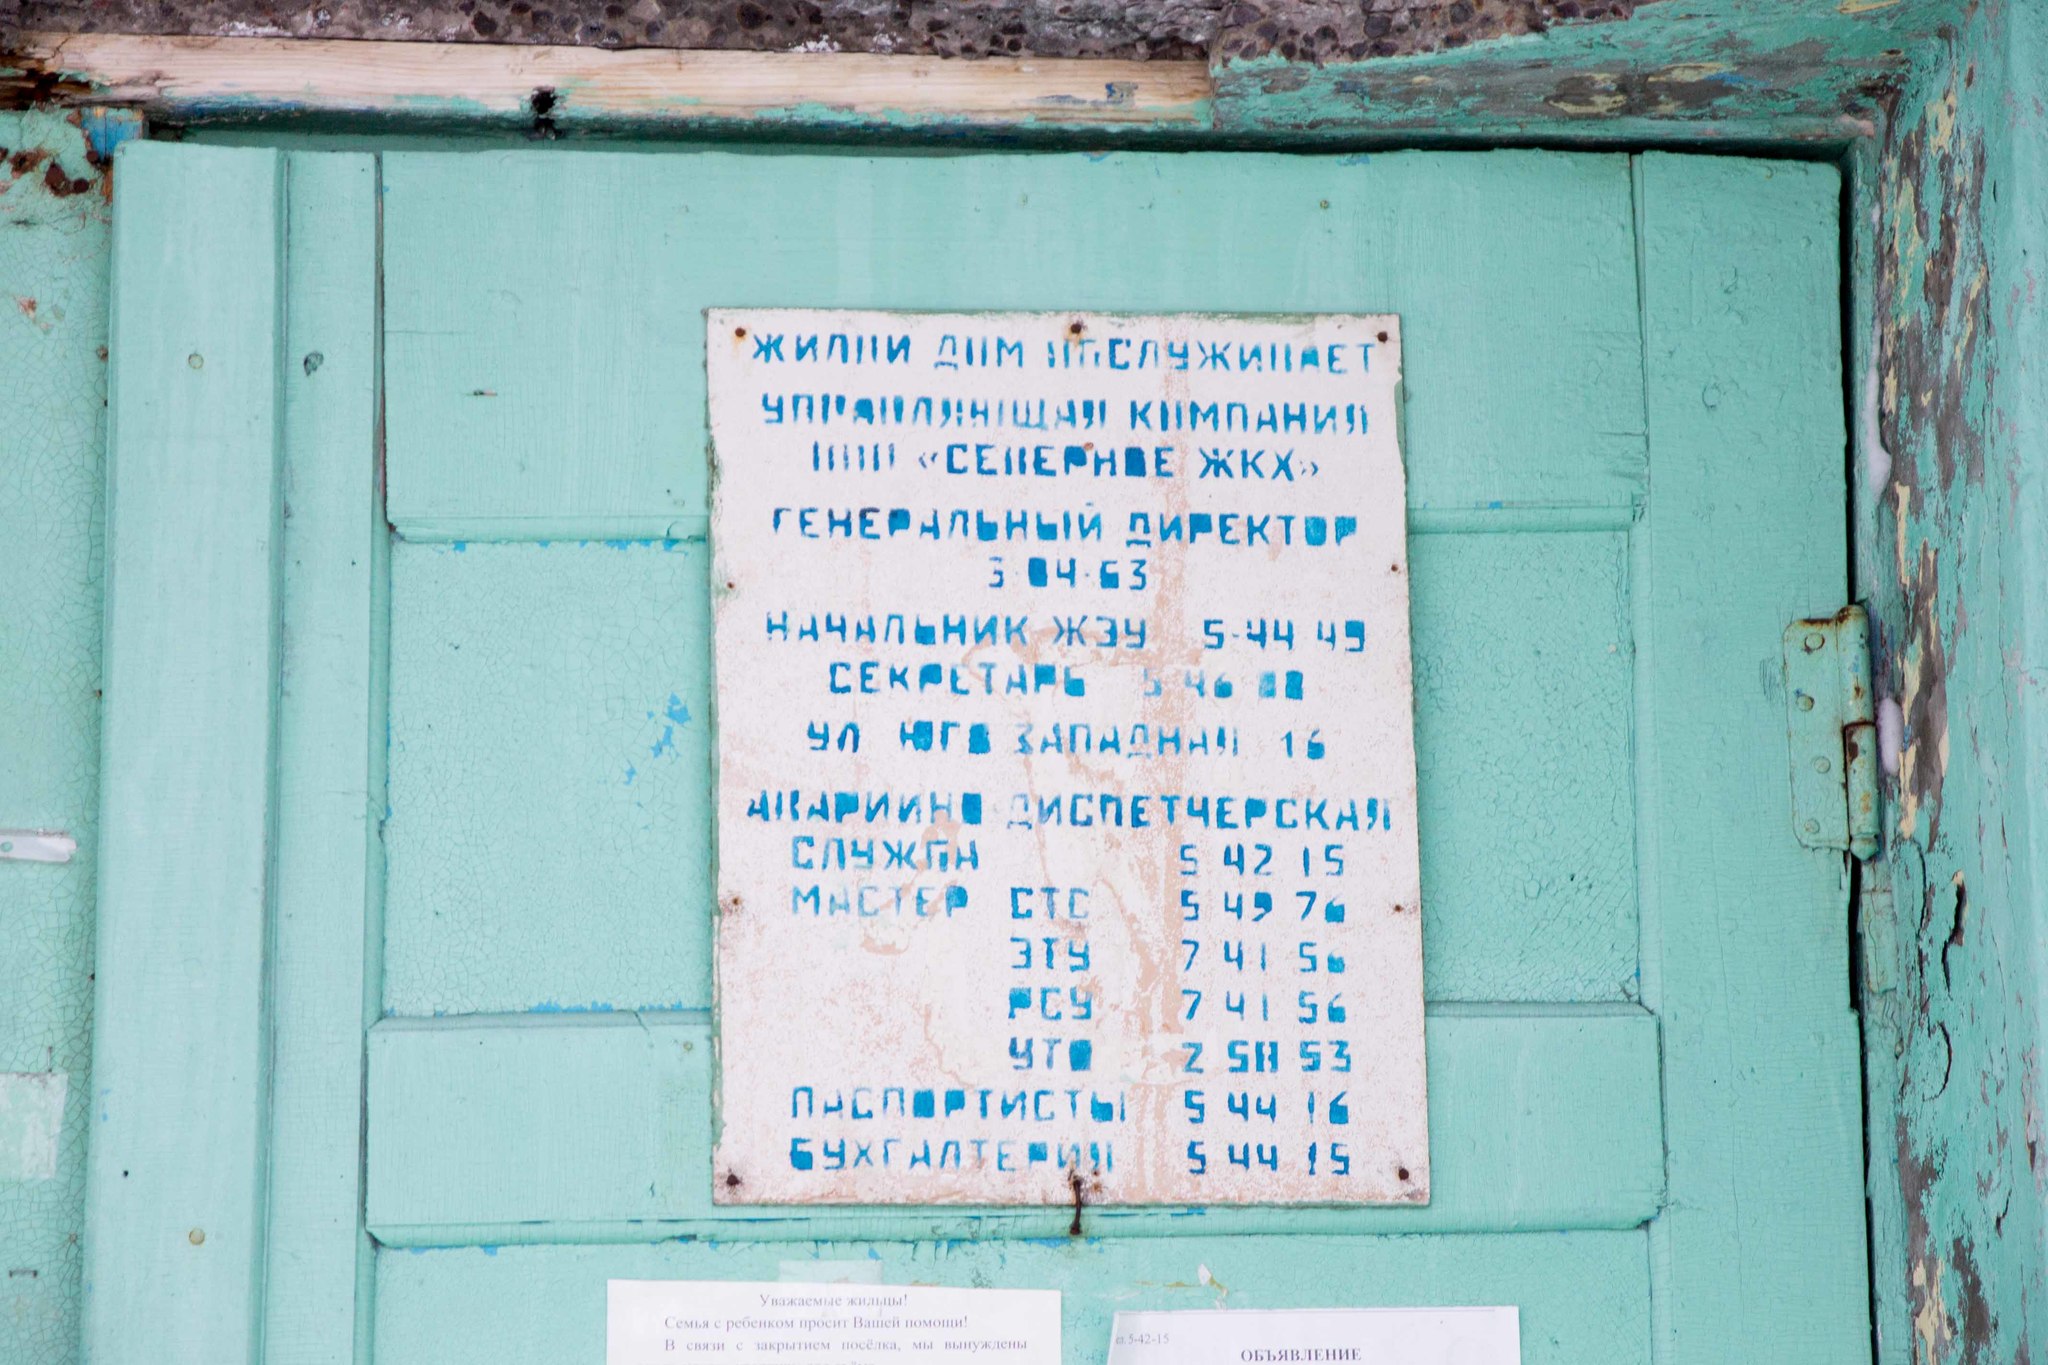 ЖИЛОЙ ДОМ ОБСЛУЖИВАЕТ
УПРАВЛЯЮЩАЯ КОМПАНИЯ
ООО «СЕВЕРНОЕ ЖКХ»
ГЕНЕРАЛЬНЫЙ ДИРЕКТОР
3-04-63
НАЧАЛЬНИК ЖЭУ 5-44 49
СЕКРЕТАРЬ 5 46
УЛ ЮГО ЗАПАДНАЯ 16
АВАРИЙНО ДИСПЕТЧЕРСКАЯ
СЛУЖБА 5 42 15
МАСТЕР СТС 5 49 76
ЭТУ 7 41 56
РСУ 7 41 56
УТО 2 58 53
ПАСПОРТИСТЫ 5 44 16
БУХГАЛТЕРИЯ 5 44 15
Уважаемые жильцы!
Семья с ребенком просит Вашей помощи!
В связи с закрытием посёлка, мы вынуждены
5-42-15
ОБЪЯВЛЕНИЕ